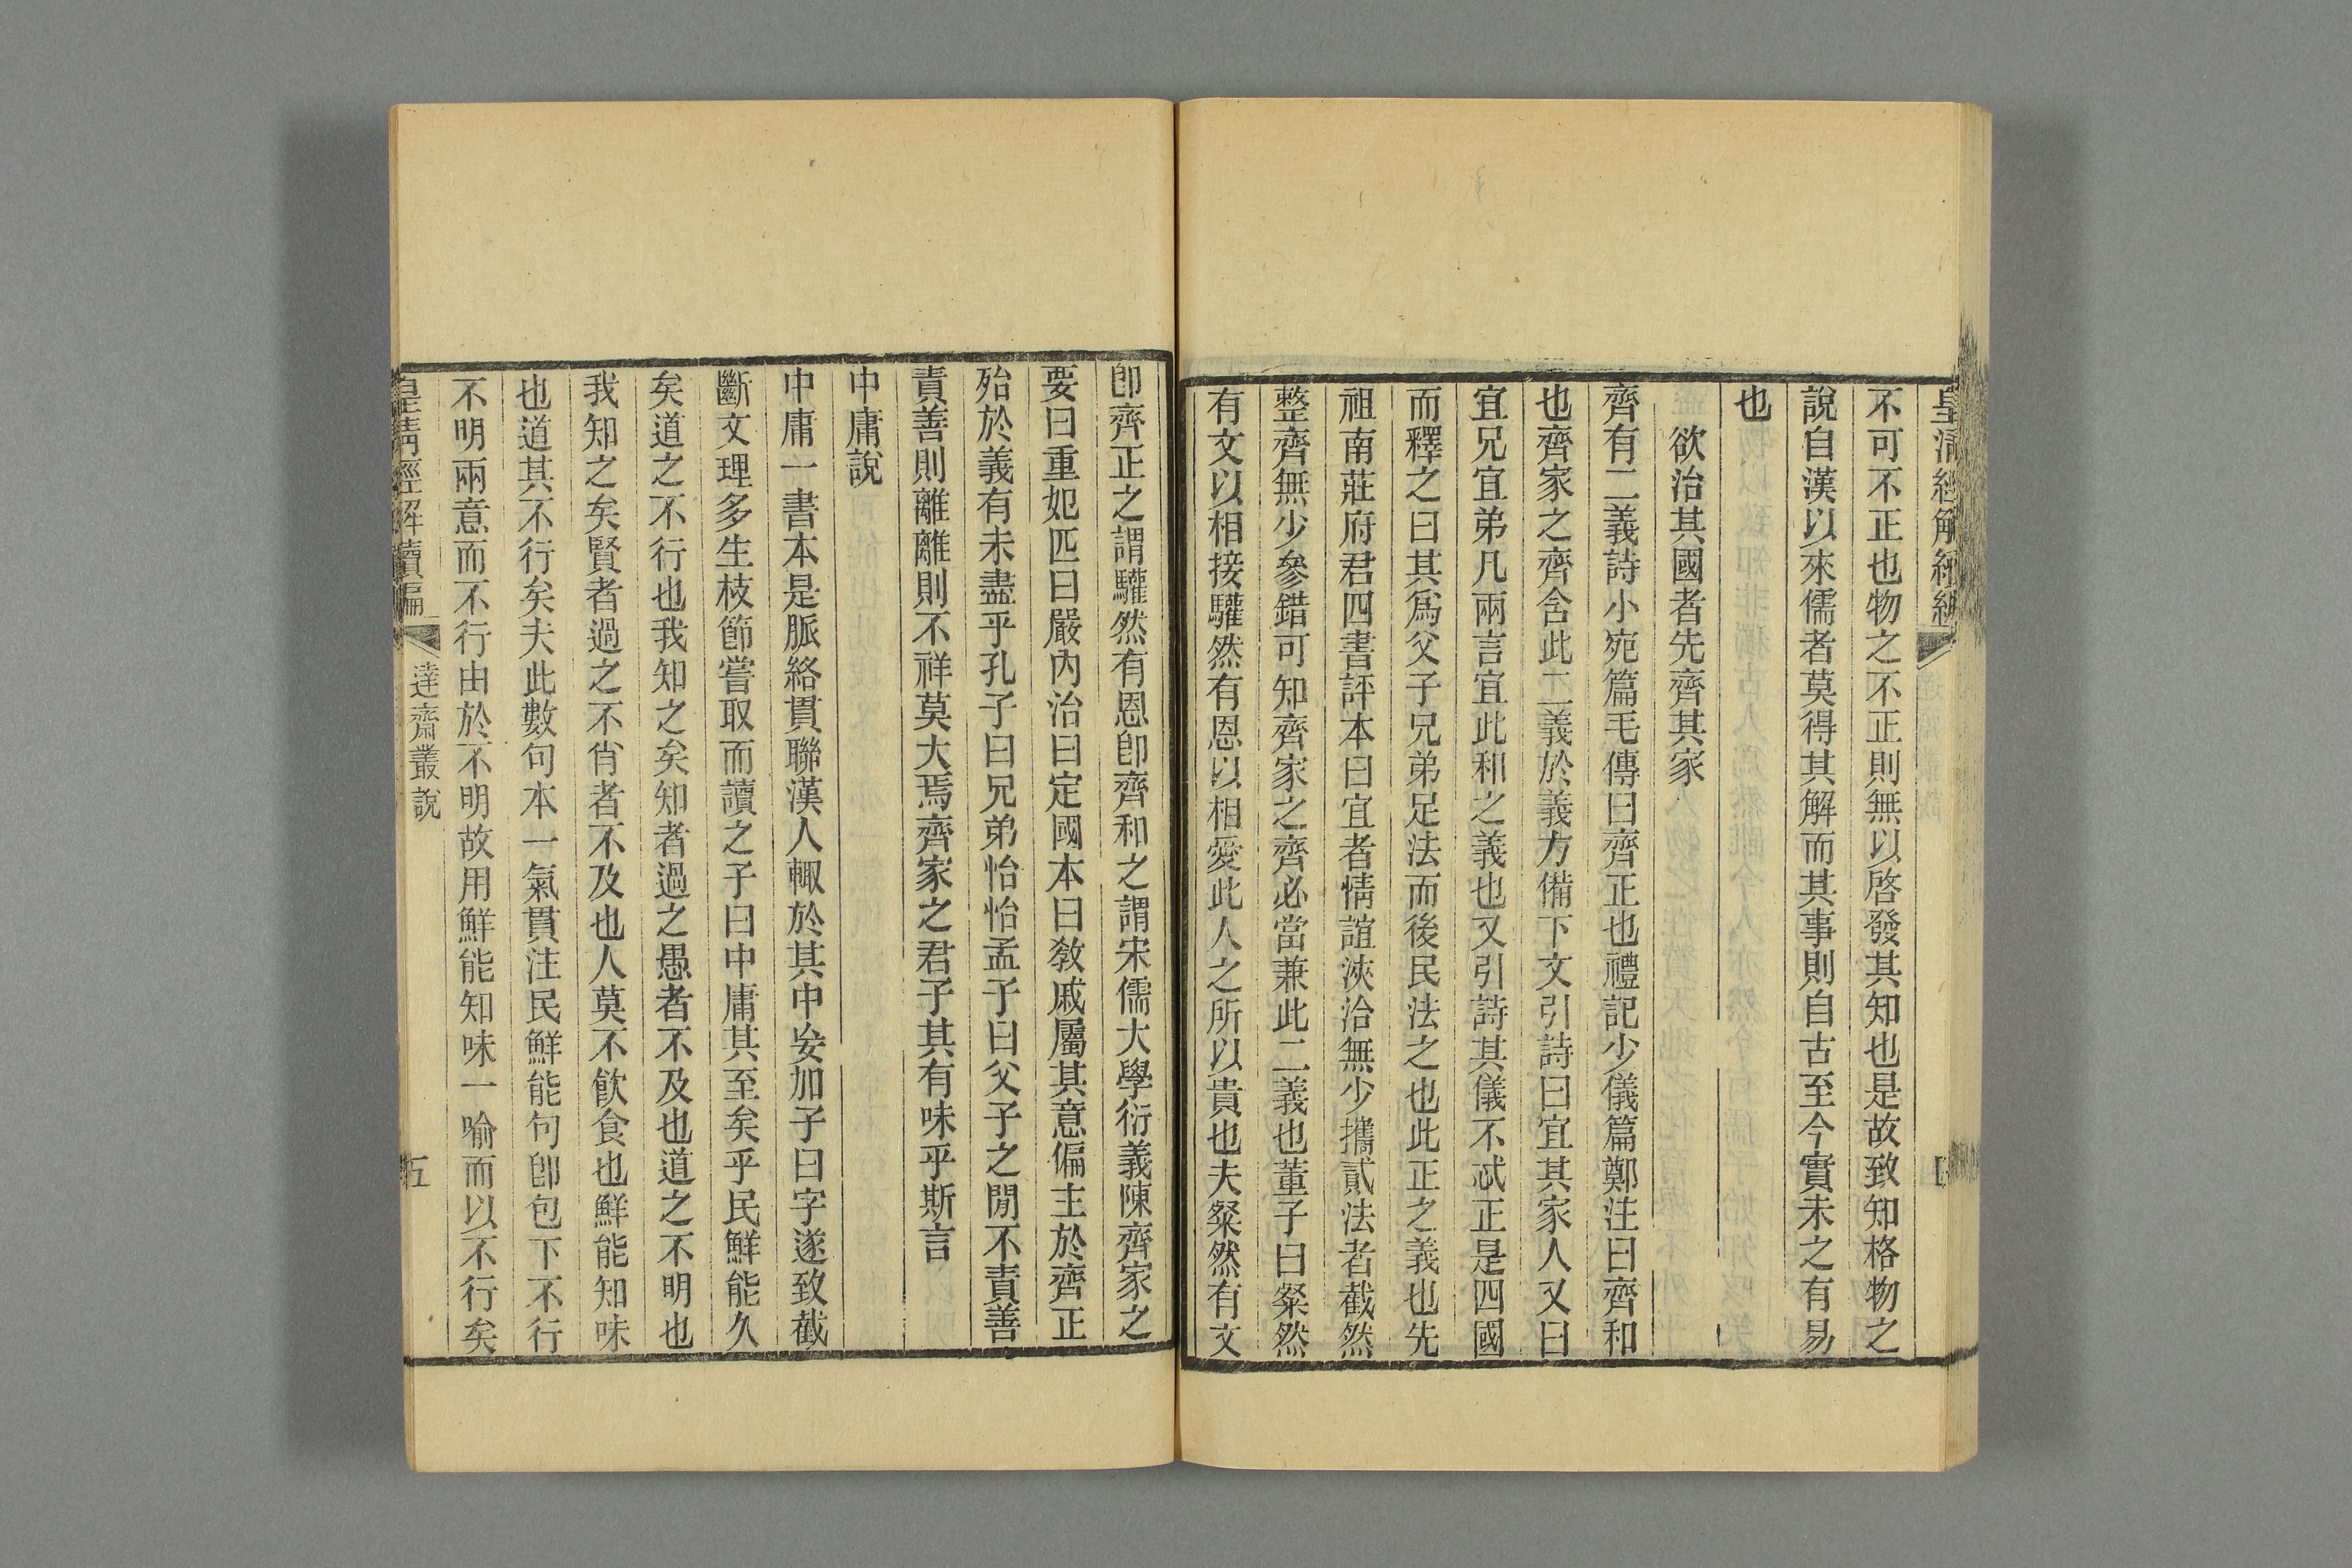 皇清經解續編
不可不正也物之不正則無以啓發其知也是故致知格物之
說自漢以來儒者莫得其解而其事則自古至今實未之有易
也
欲治其國者先齊其家
齊有二義詩小宛篇毛傳曰齊正也禮記少儀篇鄭注曰齊和
也齊家之齊含此二義於義方備下文引詩曰宜其家人又曰
宜兄宜弟凡兩言宜此和之義也又引詩其儀不忒正是四國
而釋之曰其爲父子兄弟足法而後民法之也此正之義也先
祖南莊府君四書評本曰宜者情誼浹洽無少攜貳法者截然
整齊無少參錯可知齊家之齊必當兼此二義也董子曰粲然
有文以相接驩然有恩以相愛此人之所以貴也夫粲然有文
卽齊正之謂驩然有恩卽齊和之謂宋儒大學衍義陳齊家之
要曰重妃匹曰嚴內治曰定國本曰敎戚屬其意偏主於齊正
殆於義有未盡乎孔子曰兄弟怡怡孟子曰父子之閒不責善
責善則離離則不祥莫大焉齊家之君子其有味乎斯言
中庸說
中庸一書本是脈絡貫聯漢人輒於其中妄加子曰字遂致截
斷文理多生枝節嘗取而讀之子曰中庸其至矣乎民鮮能久
矣道之不行也我知之矣知者過之愚者不及也道之不明也
我知之矣賢者過之不肖者不及也人莫不飮食也鮮能知味
也道其不行矣夫此數句本一氣貫注民鮮能句卽包下不行
不明兩意而不行由於不明故用鮮能知味一喻而以不行矣
皇淸經解續編
達齋叢說
五